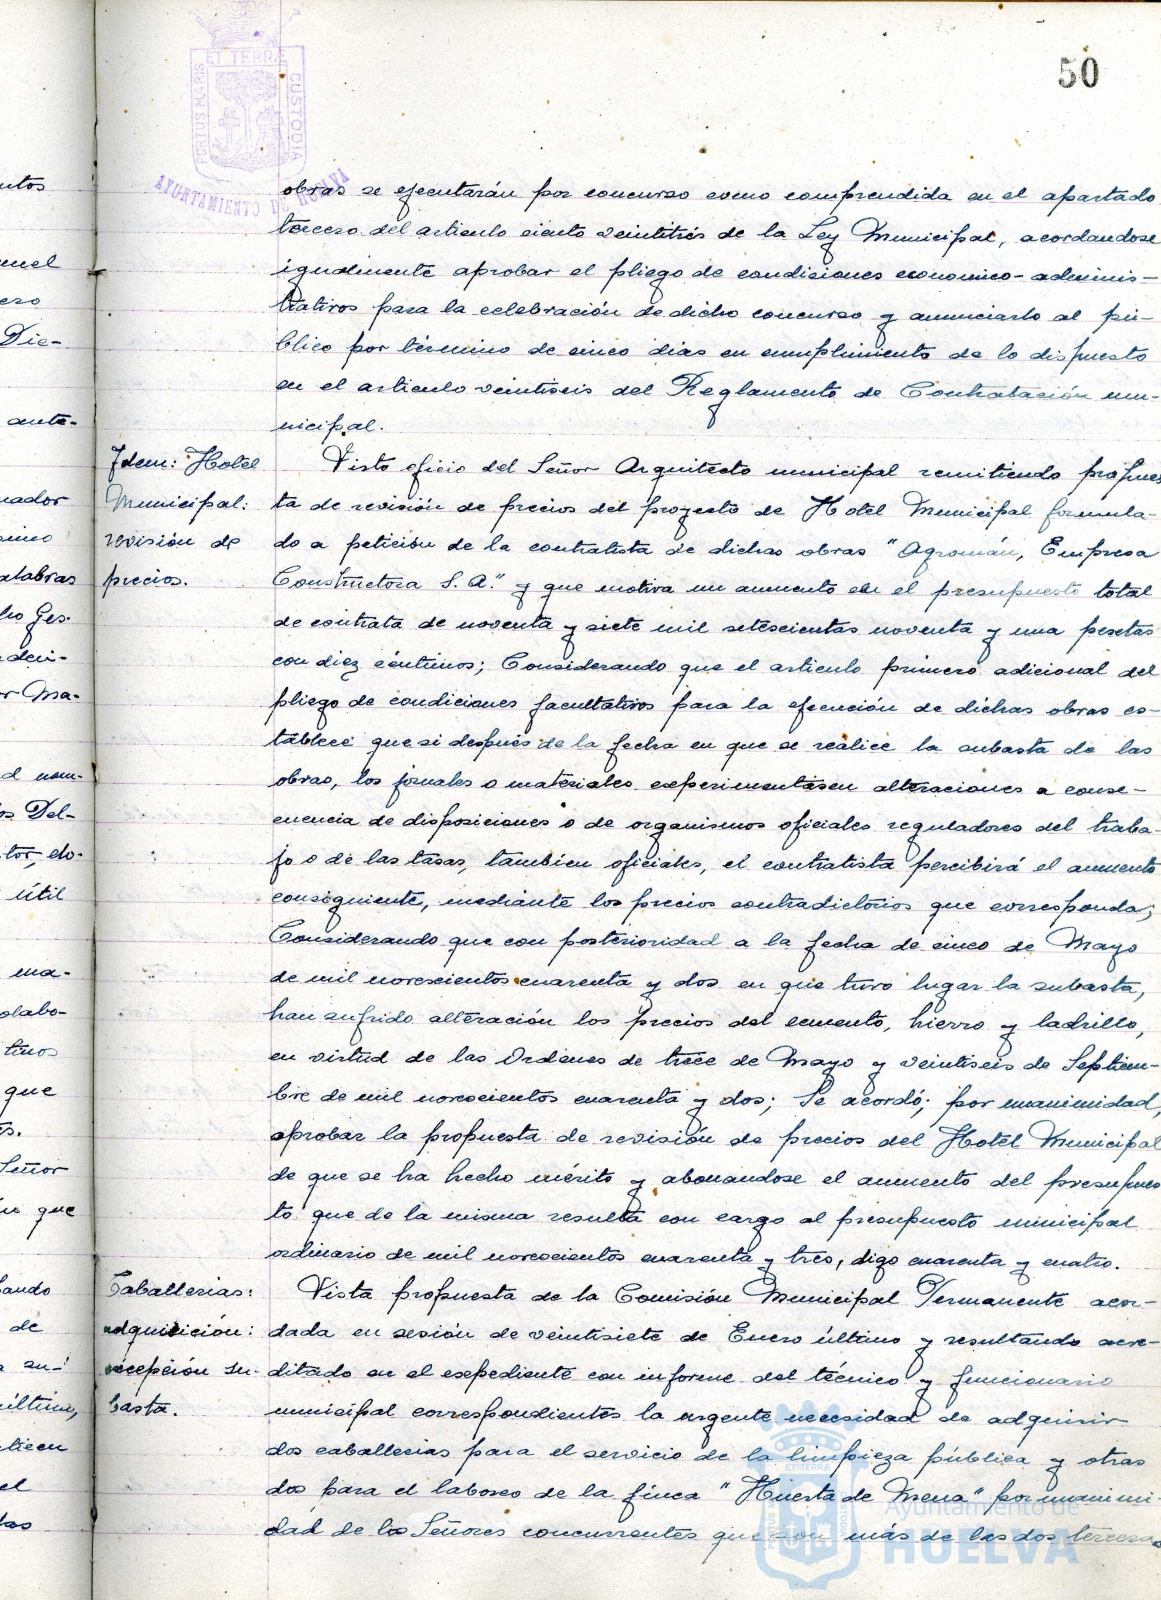 50
PORTUS MARIS ET TERRÆ CUSTODIA
AYUNTAMIENTO DE HUELVA
obras se ejecutarán por concurso como comprendida en el apartado
tercero del articulo ciento veintitrés de la Ley Municipal, acordandose
igualmente aprobar el pliego de condiciones economico-adminis-
trativos para la celebración de dicho concurso y anunciarlo al pú-
blico por término de cinco dias en cumplimiento de lo dispuesto
en el articulo veintiseis del Reglamento de Contratación mu-
nicipal.
Idem: Hotel
Municipal:
revisión de
precios.
Visto oficio del Señor Arquitecto municipal remitiendo propues
ta de revisión de precios del proyecto de Hotel Municipal formula-
do a petición de la contratista de dichas obras "Agromán, Empresa
Constructora S.A." y que motiva un aumento en el presupuesto total
de contrata de noventa y siete mil setescientas noventa y una pesetas
con diez céntimos; Considerando que el articulo primero adicional del
pliego de condiciones facultativos para la ejecución de dichas obras es-
tablece que si después de la fecha en que se realice la subasta de las
obras, los jornales o materiales experimentasen alteraciones a conse-
cuencia de disposiciones o de organismos oficiales reguladores del traba-
jo o de las tasas, tambien oficiales, el contratista percibirá el aumento
consiguiente, mediante los precios contradictorios que corresponda;
Considerando que con posterioridad a la fecha de cinco de Mayo
de mil novescientos cuarenta y dos en que tuvo lugar la subasta,
han sufrido alteración los precios del cemento, hierro y ladrillo,
en virtud de las Ordenes de trece de Mayo y veintiseis de Septiem-
bre de mil novescientos cuarenta y dos; Se acordó; por unanimidad,
aprobar la propuesta de revisión de precios del Hotel Municipal
de que se ha hecho mérito y abonandose el aumento del presupues
to que de la misma resulta con cargo al presupuesto municipal
ordinario de mil novescientos cuarenta y tres, digo cuarenta y cuatro.
Caballerias:
adquisición:
excepción su-
basta.
Vista propuesta de la Comisión Municipal Permanente acor-
dada en sesión de veintisiete de Enero último y resultando acre-
ditado en el expediente con informe del técnico y funcionario
municipal correspondientes la urgente necesidad de adquirir
dos caballerias para el servicio de la limpieza pública y otras
dos para el laboreo de la finca "Huerta de Mena" por unanimi-
dad de los Señores concurrentes que son más de las dos terceras
Ayuntamiento de
HUELVA